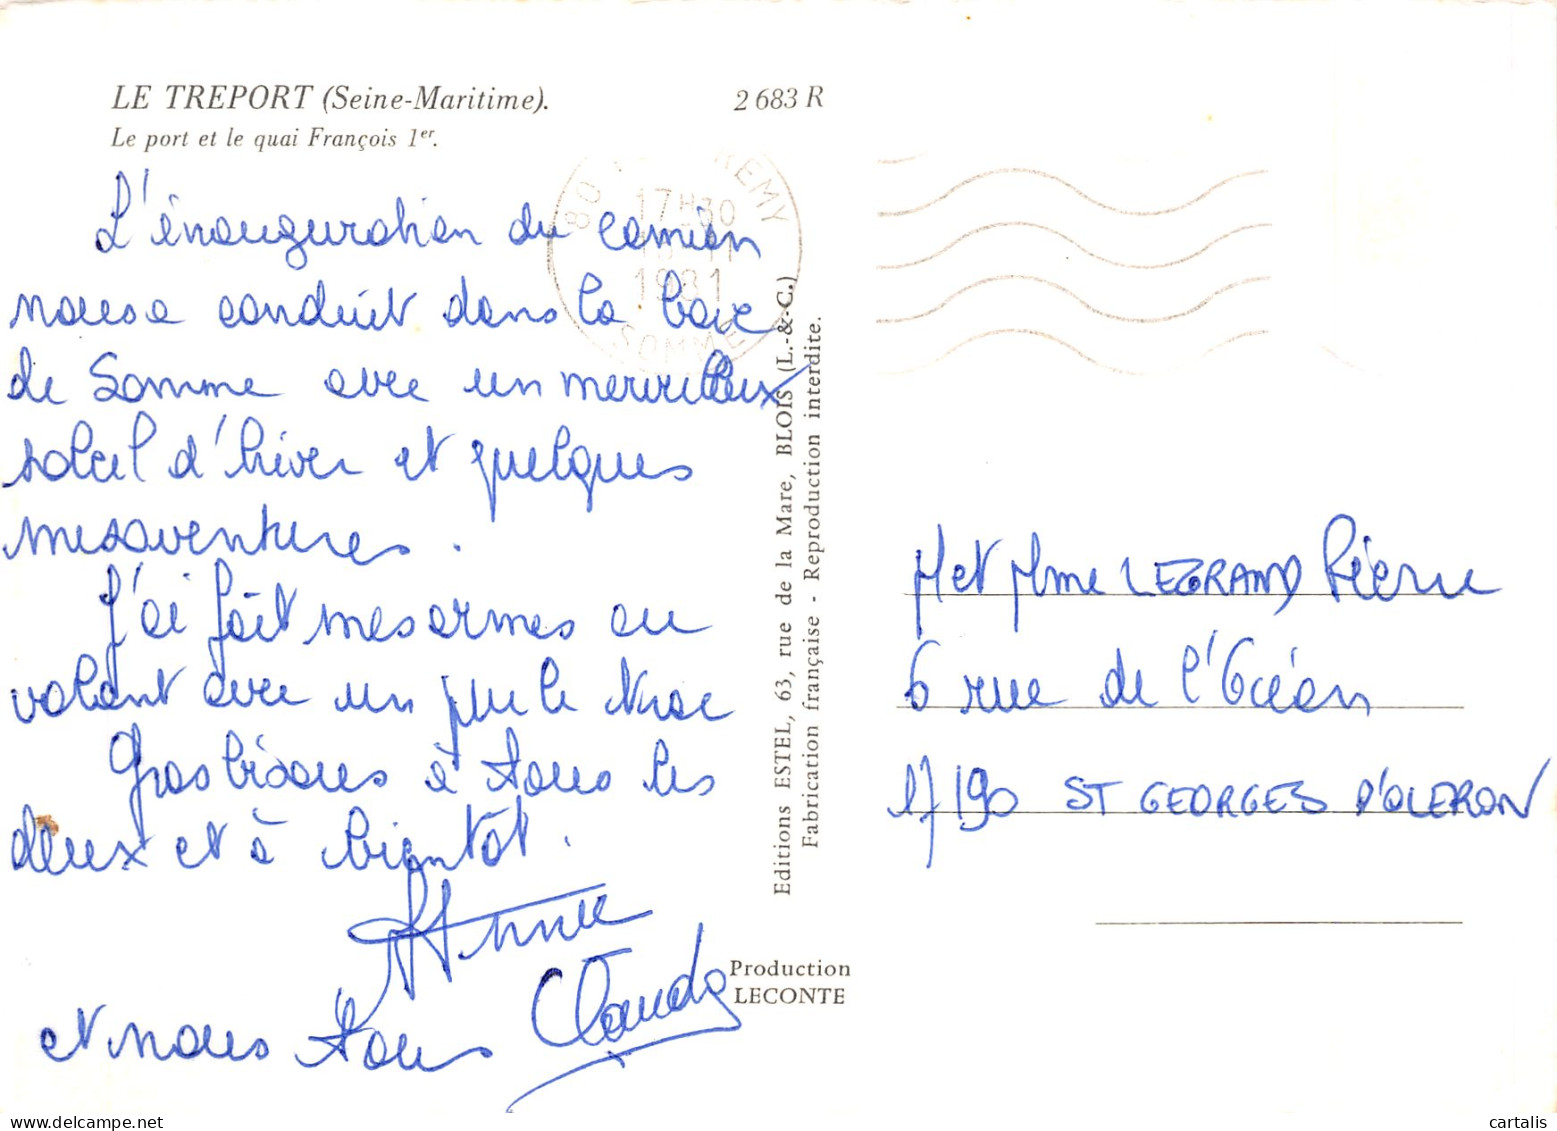 LE TREPORT (Seine-Maritime).
2683 R
Le port et le quai François 1er.
L'énauguration du camion
nous a conduit dans la baie
de Somme avec un merveilleux
soleil d'hiver et quelques
mesaventures.
J'ai fait mes armes au
volant avec un peu le trac
Gros bisous à tous les
deux et à bientôt.
Annie
Claude
et nous tous
80 REMY
17H30
11
1981
SOMME
Editions ESTEL, 63, rue de la Mare, BLOIS (L.-&-C.)
Fabrication française - Reproduction interdite.
Production
LECONTE
M et Mme LEGRAND Pierre
6 rue de l'Océan
17190 ST GEORGES D'OLERON
cartalis